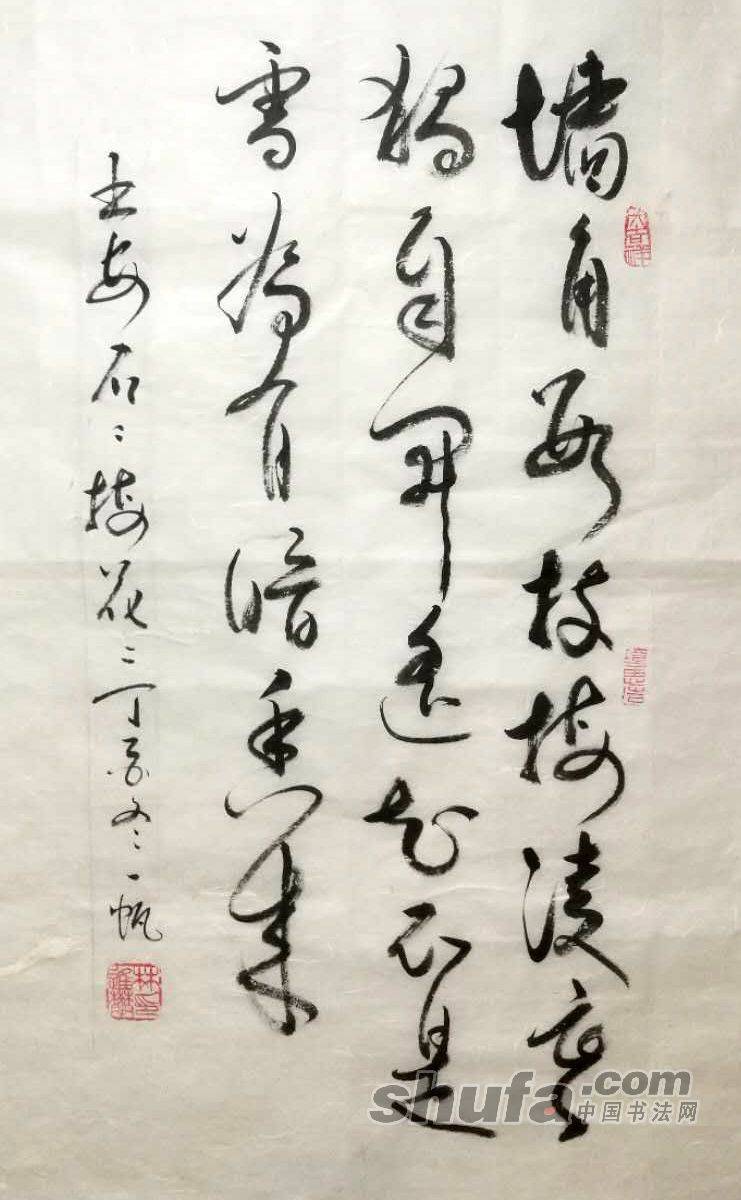 墙角数枝梅凌寒
独自开遥知不是
雪为有暗香来
王安石梅花丁酉冬一帆
shufa.com
中国书法网